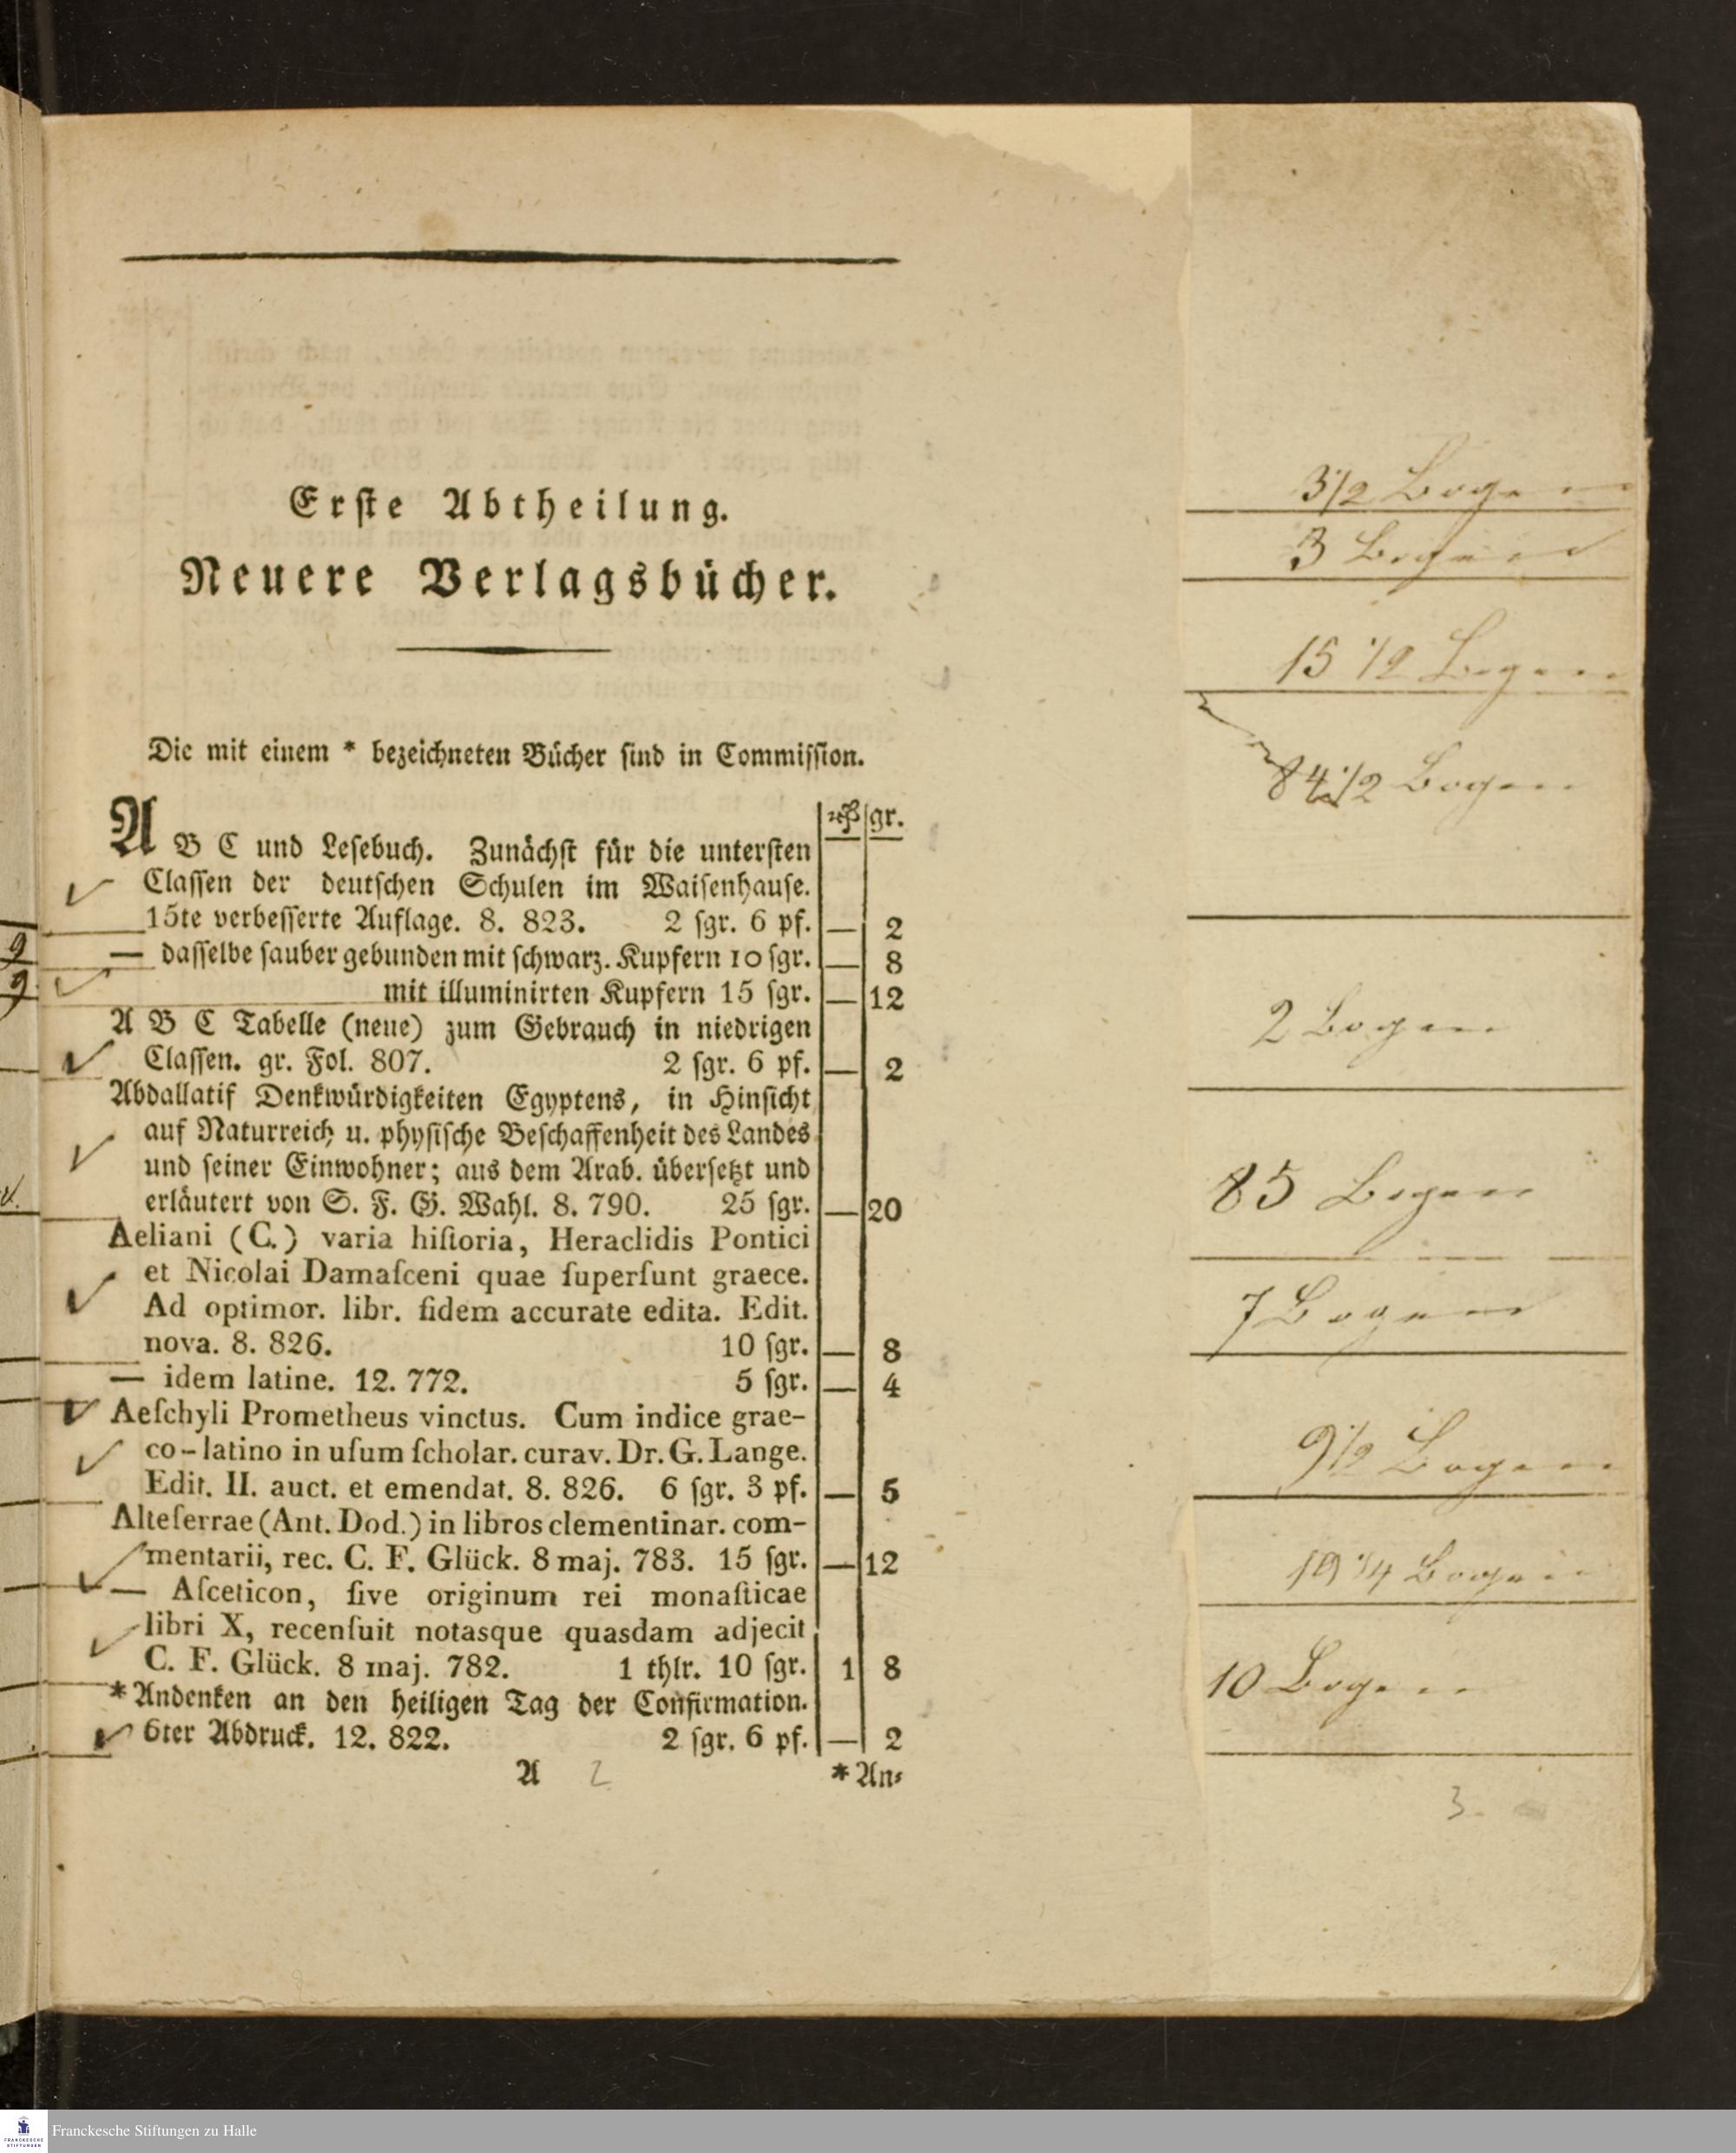 Erſte Abtheilung.
Neuere Verlagsbücher.
Die mit einem * bezeichneten Bücher ſind in Commiſſion.
gr.
A B C und Leſebuch. Zunächſt für die unterſten
Claſſen der deutſchen Schulen im Waiſenhauſe.
15te verbeſſerte Auflage. 8. 823. 2 ſgr. 6 pf. — 2
— daſſelbe ſauber gebunden mit ſchwarz. Kupfern 10 ſgr. — 8
mit illuminirten Kupfern 15 ſgr. — 12
A B C Tabelle (neue) zum Gebrauch in niedrigen
Claſſen. gr. Fol. 807. 2 ſgr. 6 pf. — 2
Abdallatif Denkwürdigkeiten Egyptens, in Hinſicht
auf Naturreich u. phyſiſche Beſchaffenheit des Landes
und ſeiner Einwohner; aus dem Arab. überſetzt und
erläutert von S. F. G. Wahl. 8. 790. 25 ſgr. — 20
Aeliani (C.) varia hiſtoria, Heraclidis Pontici
et Nicolai Damaſceni quae ſuperſunt graece.
Ad optimor. libr. fidem accurate edita. Edit.
nova. 8. 826. 10 ſgr. — 8
— idem latine. 12. 772. 5 ſgr. — 4
Aeſchyli Prometheus vinctus. Cum indice grae-
co-latino in uſum ſcholar. curav. Dr. G. Lange.
Edit. II. auct. et emendat. 8. 826. 6 ſgr. 3 pf. — 5
Alteſerrae (Ant. Dod.) in libros clementinar. com-
mentarii, rec. C. F. Glück. 8 maj. 783. 15 ſgr. — 12
— Aſceticon, ſive originum rei monaſticae
libri X, recenſuit notasque quasdam adjecit
C. F. Glück. 8 maj. 782. 1 thlr. 10 ſgr. 1 8
*Andenken an den heiligen Tag der Confirmation.
6ter Abdruck. 12. 822. 2 ſgr. 6 pf. — 2
A 2 *An⸗
3 1/2 Bogen
3 Bogen
15 1/2 Bogen
84 1/2 Bogen
2 Bogen
85 Bogen
7 Bogen
9 1/2 Bogen
19 1/4 Bogen
10 Bogen
3.
Franckesche Stiftungen zu Halle